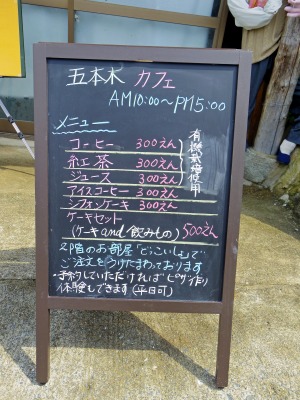 五本木 カフェ
AM10:00〜PM5:00
メニュー
コーヒー 300えん
紅茶 300えん
ジュース 300えん
有機栽培使用
アイスコーヒー 300えん
シフォンケーキ 300えん
ケーキセット
(ケーキand飲みもの) 500えん
2階のお部屋「どっこいしょ」で
ご注文をうけたまわっております
・予約していただければピザ作り
体験もできます(平日可)